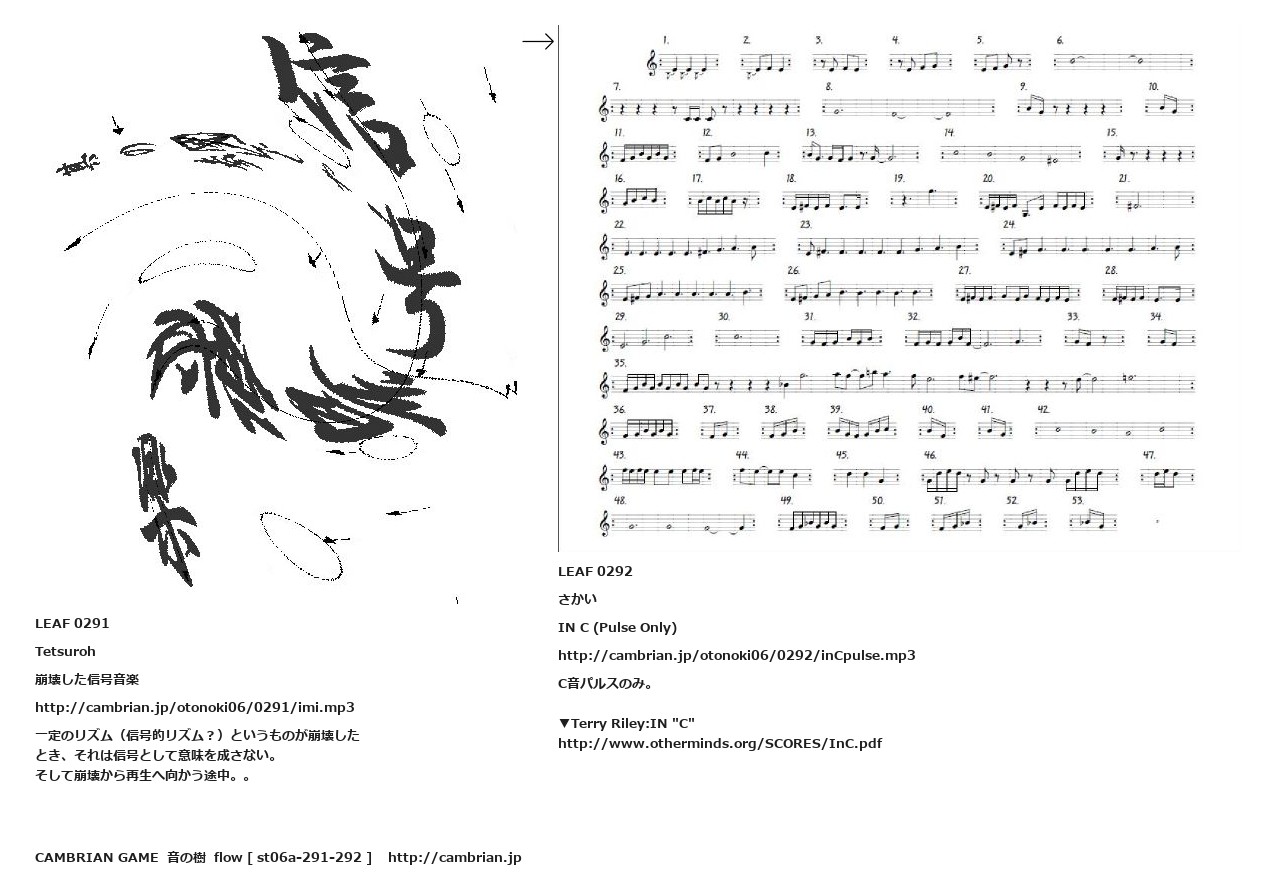 信
号
1. 2. 3. 4. 5. 6.
7. 8. 9. 10.
11. 12. 13. 14. 15.
16. 17. 18. 19. 20. 21.
22. 23. 24.
25. 26. 27. 28.
29. 30. 31. 32. 33. 34.
35.
36. 37. 38. 39. 40. 41. 42.
43. 44. 45. 46. 47.
48. 49. 50. 51. 52. 53.
LEAF 0291
Tetsuroh
崩壊した信号音楽
http://cambrian.jp/otonoki06/0291/imi.mp3
一定のリズム（信号的リズム？）というものが崩壊した
とき、それは信号として意味を成さない。
そして崩壊から再生へ向かう途中。。
LEAF 0292
さかい
IN C (Pulse Only)
http://cambrian.jp/otonoki06/0292/inCpulse.mp3
C音パルスのみ。
▼Terry Riley:IN "C"
http://www.otherminds.org/SCORES/InC.pdf
CAMBRIAN GAME 音の樹 flow [ st06a-291-292 ] http://cambrian.jp